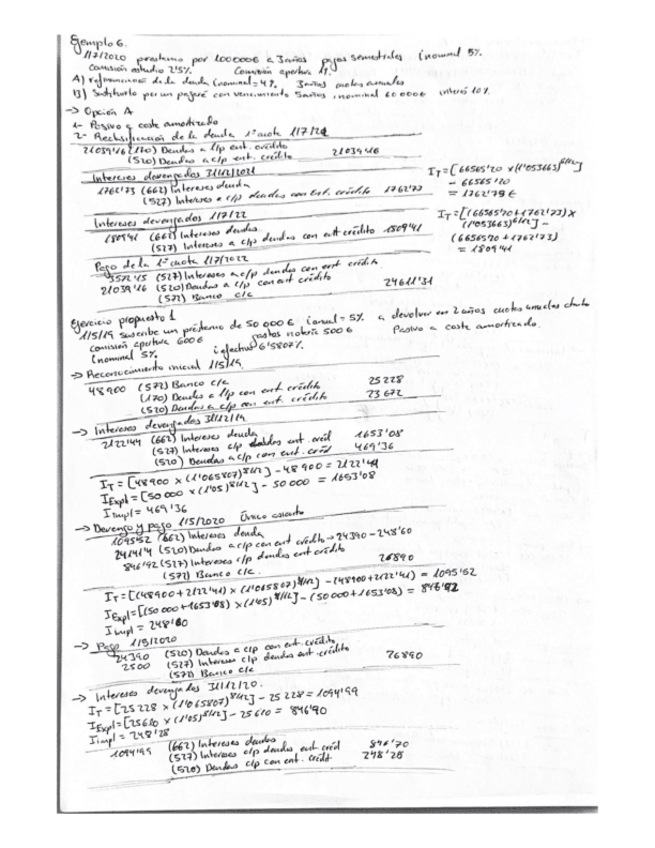 Ejemplo 6.
1/7/2020 prestamo por 100000€ a 3 años pagos semestrales i nominal 5%
comisión estudio 2'5%. Comisión apertura 1%.
A) refinanciación de la deuda i nominal = 4% 3 años cuotas anuales
B) Sustituirlo por un pagaré con vencimiento 5 años, nominal 60000€ interés 10%
→ Opción A
1- Pasivo a coste amortizado
2- Reclasificación de la deuda 1ª cuota 1/7/21
21039'16 (170) Deudas a l/p ent. crédito
(520) Deudas a c/p ent. crédito 21039'16
Intereses devengados 31/12/2021
1762'73 (662) Intereses deuda
(527) Intereses a c/p deudas con ent. crédito 1762'73
I_T = [66565'20 × (1'053663)^6/12]
- 66565'20
= 1762'79€
Intereses devengados 1/7/22
1809'41 (662) Intereses deudas
(527) Intereses a c/p deudas con ent crédito 1809'41
I_T = [(66565'20 + 1762'73) ×
(1'053663)^6/12] -
(66565'20 + 1762'73)
= 1809'41
Pago de la 1ª cuota 1/7/2022
3572'15 (527) Intereses a c/p deudas con ent crédito
21039'16 (520) Deudas a c/p con ent crédito
(572) Banco c/c 24611'31
Ejercicio propuesto 1
1/5/19 suscribe un préstamo de 50000€ i anual = 5% a devolver en 2 años cuotas anuales
comisión apertura 600€ gastos notaría 500€ Pasivo a coste amortizado.
i nominal 5% i efectivo 6'5807%.
→ Reconocimiento inicial 1/5/19
48900 (572) Banco c/c
(170) Deudas a l/p ent. crédito 25228
(520) Deudas a c/p con ent. crédito 23672
→ Intereses devengados 31/12/19
2122'44 (662) Intereses deuda
(527) Intereses c/p deudas ent. créd 1653'08
(520) Deudas a c/p con ent. créd 469'36
I_T = [48900 × (1'065807)^8/12] - 48900 = 2122'44
I_Expl = [50000 × (1'05)^8/12] - 50000 = 1653'08
I impl = 469'36
→ Devengo y pago 1/5/2020 Único asiento
1095'52 (662) Intereses deuda
24141'4 (520) Deudas a c/p con ent crédito → 24390 - 248'60
846'92 (527) Intereses c/p deudas ent crédito
(572) Banco c/c. 26890
I_T = [(48900 + 2122'44) × (1'065807)^4/12] - (48900 + 2122'44) = 1095'52
I_Expl = [(50000 + 1653'08) × (1'05)^4/12] - (50000 + 1653'08) = 846'92
I impl = 248'60
→ Pago 1/5/2020
24390 (520) Deudas a c/p con ent. crédito
2500 (527) Intereses c/p deudas ent. crédito
(572) Banco c/c 26890
→ Intereses devengados 31/12/20.
I_T = [25228 × (1'065807)^8/12] - 25228 = 1094'99
I_Expl = [25610 × (1'05)^8/12] - 25610 = 846'70
I impl = 248'28
1094'99 (662) Intereses deudas
(527) Intereses c/p deudas ent créd 846'70
(520) Deudas c/p con ent. crédit 248'28